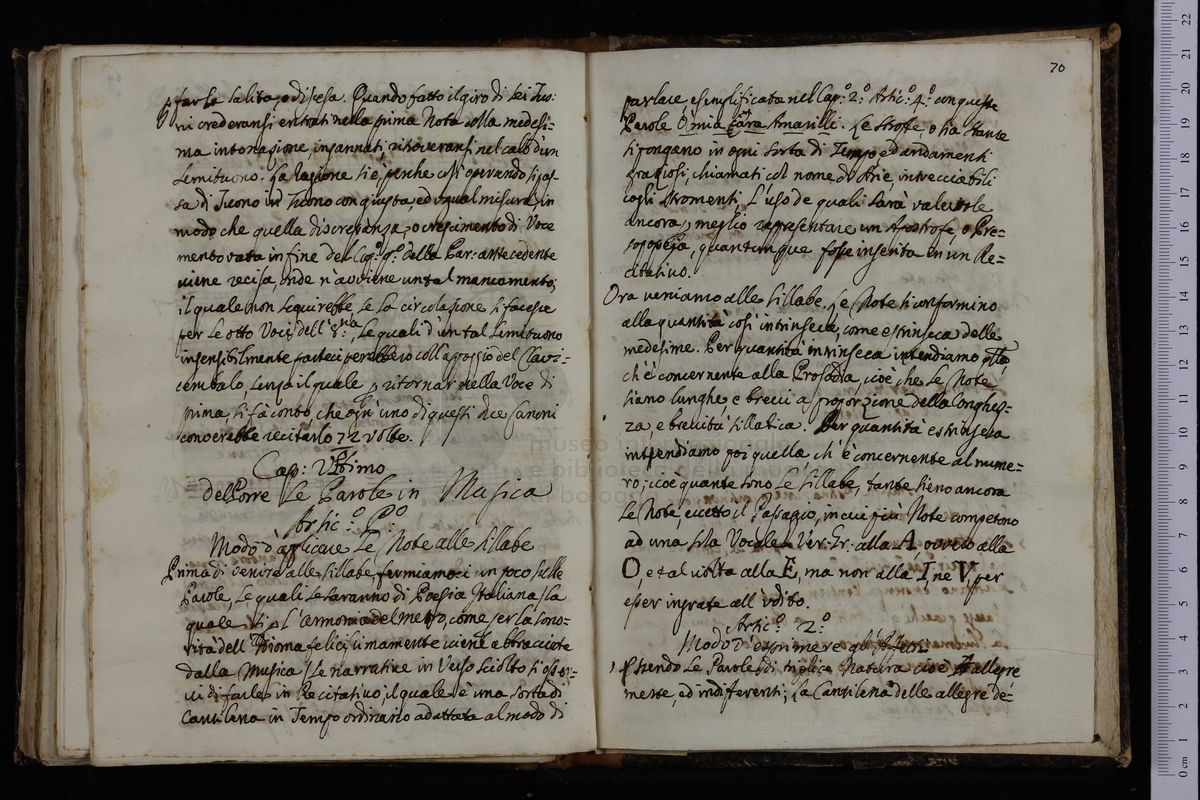 far la salita, e discesa. Quando fatto il giro di sei Tuo:
ni crederansi entrati nella prima Nota colla medesi=
ma intonazione, ingannati, ritroveransi nel calo d'un
semituono. La ragione si è, perche così operando si pas:
sa di Tuono in Tuono con giusta, ed equal misura, in
modo che quella discrepanza, o crescimento di Voce
mentovata in fine del Cap.º 9.º della Par: antecedente
viene recisa, onde n'avviene un tal mancamento;
il quale non seguirebbe se la circolazione si facesse
per le otto Voci dell'8.va, le quali d'un tal semituono
insensibilmente coll'appoggio del Clavi=
cembalo, senza il quale p ritornar nella Voce di
prima, si fà conto che ogn'uno di questi dice Canoni
converebbe recitarlo 72 volte.
Cap: Vltimo
del Porre le Parole in Musica
Artic.º P.º
Modo d'applicare le Note alle sillabe
Prima di venire alle sillabe, fermiamoci un poco sulle
Parole, le quali se saranno di Poesia Italiana, la
quale sì p l'armonia del metro, come per la sono=
rità dell'Idioma felicissimamente viene abbracciata
dalla Musica, le narrative in Verso sciolto si osser=
vi di farle in Recitativo, il quale è una sorta di
Cantilena in Tempo ordinario adattata al modo di
70
parlare, esemplificata nel Cap.º 2.º Artic.º 4.º con queste
Parole O mia cara Amarilli. Le strofe, o sia stante
si pongano in ogni sorta di Tempo ed andamenti
graziosi, chiamati col nome di Arie, intrecciabili
cogli stromenti, L'uso de quali sarà valevole
ancora p meglio rappresentare un Apostrofe, o Pro=
sopopeja, quantunque fosse inserita in un Re=
citativo.
Ora veniamo alle sillabe. Le Note si conformino
alla quantità così intrinseca, come estrinseca delle
medesime. Per quantità intrinseca intendiamo qlla,
ch'è concernente alla Prosodia, cioè che le Note
siano lunghe, e brevi a proporzione della longhez=
za e brevità sillatica. Per quantità estrinseca
intendiamo poi quella ch'è concernente al nume=
ro, cioè quante sono le sillabe, tante sieno ancora
le Note, eccetto il Passagio, in cui più Note competono
ad una sola Vocale. Ver: Gr: alla A, ovvero alla
O, e tal volta alla E, ma non alla I, ne V, per
esser ingrate all'vdito.
Artic.º 2.º
Modo d'esprimere gli Affetti
Essendo le Parole di triplice Natura cioè allegre
mente, ed indifferenti; La Cantilena delle allegre de=